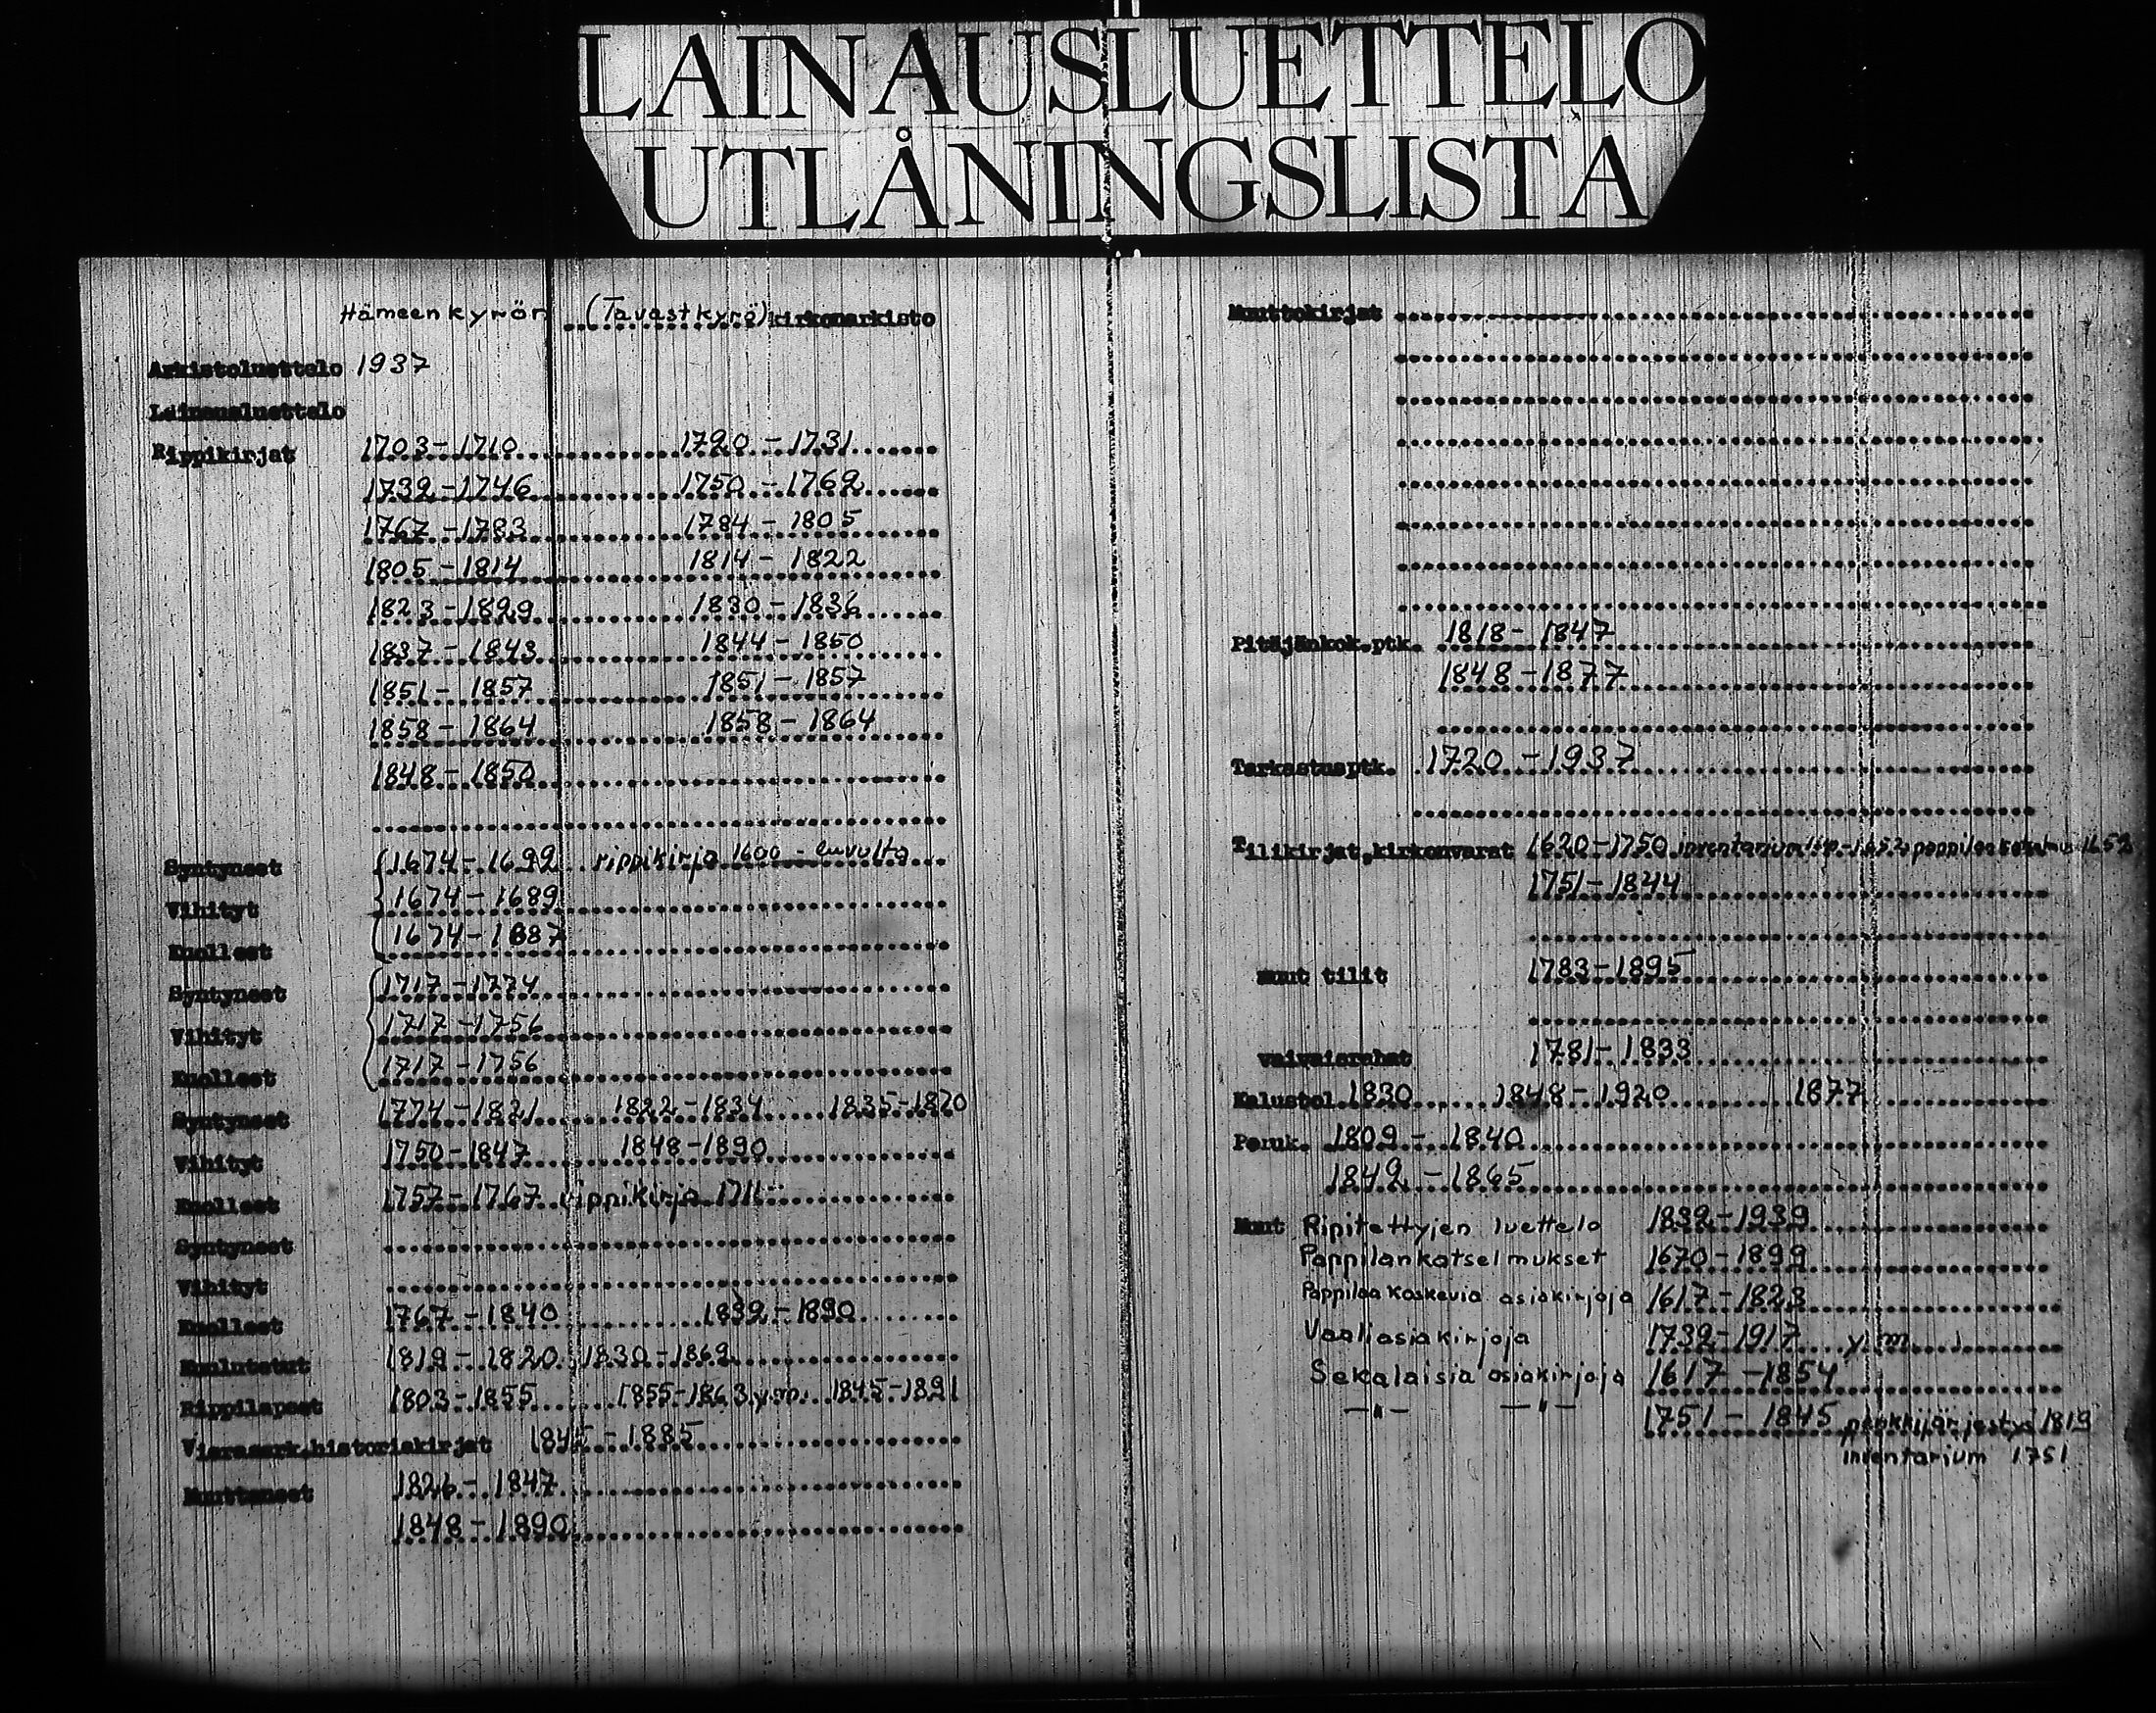 LAINAUSLUETTELO
UTLÅNINGSLISTA
Hämeenkyrön (Tavastkyrö) kirkonarkisto
Arkistoluettelo 1937
Lainausluettelo
Rippikirjat 1703-1710 1720-1731
1739-1746 1750-1762
1767-1783 1784-1805
1805-1814 1814-1822
1823-1829 1830-1836
1837-1843 1844-1850
1851-1857 1851-1857
1858-1864 1858-1864
1848-1850
Syntyneet 1674-1699 rippikirja 1600-luvulta
Vihityt 1674-1689
Kuolleet 1674-1687
Syntyneet 1717-1774
Vihityt 1717-1756
Kuolleet 1717-1756
Syntyneet 1774-1821 1822-1834 1835-1870
Vihityt 1750-1847 1848-1890
Kuolleet 1757-1767 rippikirja 1711-
Syntyneet
Vihityt
Kuolleet 1767-1840 1839-1890
Kuulutetut 1819-1820 1830-1869
Rippilapset 1803-1855 1855-1863 y.m. 1845-1891
Vierasserk.historiakirjat 1845-1885
Muuttaneet 1826-1847
1848-1890
Muuttokirjat
Pitäjänkok.ptk. 1818-1847
1848-1877
Tarkastusptk. 1720-1937
Tilikirjat,kirkonvarat 1620-1750 inventarium 1652
1751-1844
muut tilit 1783-1895
vaivaisrahat 1781-1833
Kalustol. 1830 1848-1920 1877
Peruk. 1809-1840
1842-1865
Muut Ripitettyjen luettelo 1832-1939
Pappilankatselmukset 1670-1899
Pappilaa koskevia asiakirjoja 1617-1823
Vaaliasiakirjoja 1732-1917 y.m.
Sekalaisia asiakirjoja 1617-1854
-"- -"- 1751-1845 penkkijärjestys 1819
inventarium 1751